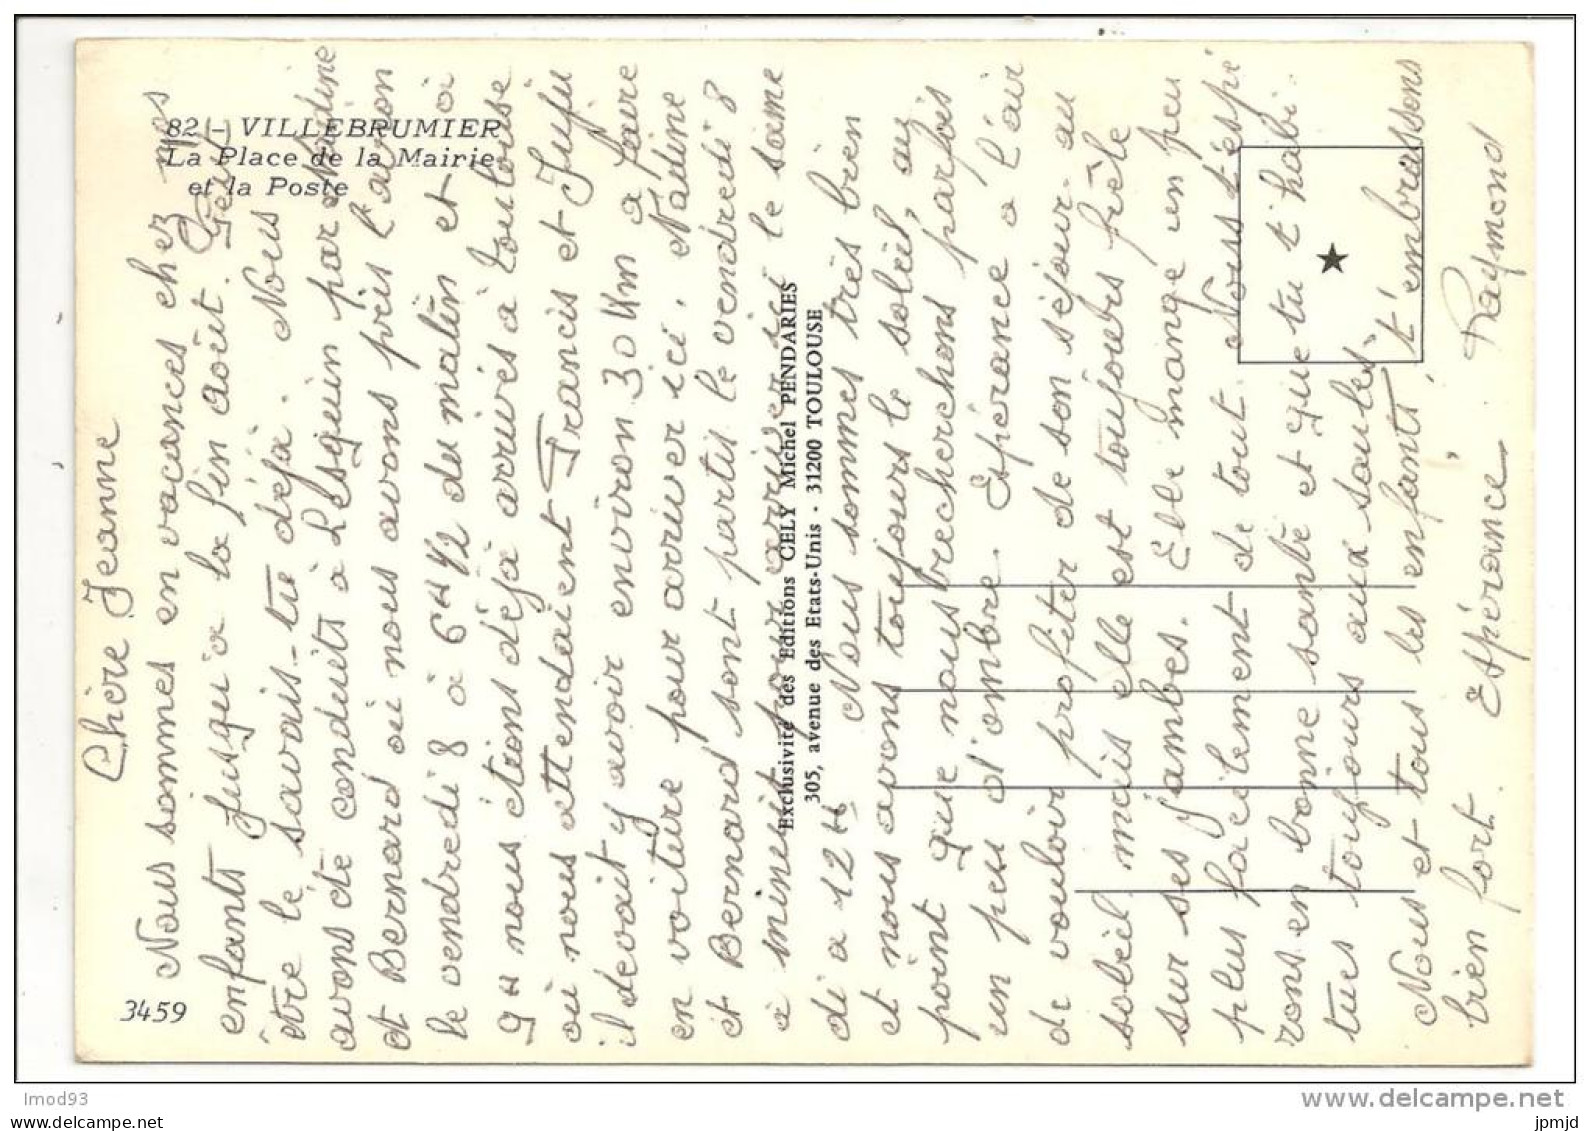 82 - VILLEBRUMIER
La Place de la Mairie
et la Poste
3459
Exclusivité des Editions CELY Michel PENDARIES
305, avenue des Etats-Unis - 31200 TOULOUSE
Chère Jeanne
Nous sommes en vacances chez nos
enfants jusqu'à la fin août.
être le savais-tu déjà. Nous
avons été conduits à Lesquin par Nadine
et Bernard où nous avons pris l'avion
le vendredi 8 à 6H 1/2 du matin et à
9H nous étions déjà arrivés à Toulouse
où nous attendaient Francis et Fufu
il devait y avoir environ 30 Km à faire
en voiture pour arriver ici. Nadine
et Bernard sont partis le vendredi 8
à minuit pour arriver ici le same
di à 12H
Nous sommes très bien
et nous avons toujours le soleil, au
point que nous recherchons parfois
un peu d'ombre. Espérance a l'air
de vouloir profiter de son séjour au
soleil mais elle est toujours frêle
sur ses jambes. Elle mange un peu
plus facilement de tout. Nous t'espé
rons en bonne santé et que tu t'habi
tues toujours aux
Nous et tous les enfants t'embrassons
bien fort. Espérance Raymond
lmod93
www.delcampe.net
jpmjd